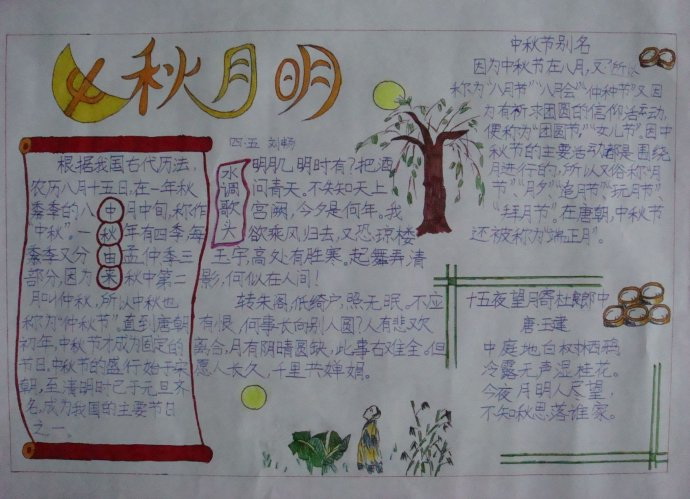 中秋月明
四.五 刘畅
根据我国古代历法,
农历八月十五日,在一年秋
季的八月中旬,称作
"中秋"。一年有四季,每
季又分 孟仲季三
部分,因为 秋中第二
月叫仲秋,所以中秋也
称为"仲秋节"。直到唐朝
初年,中秋节才成为固定的
节日。中秋节的盛行始于宋
朝,至 明时已于元旦齐
名,成为我国的主要节日
之一。
中
秋
由
来
水调歌头
明月几明时有?把酒
问青天。不知知天上
宫阙,今夕是何年。我
欲乘风归去,又恐琼楼
玉宇高处有胜寒。起舞弄清
影,何似在人间!
转朱阁,低绮户,照无眠。不应
有恨,何事长向别人圆?人有悲欢
离合,月有阴晴圆缺,此事古难全。但
愿人长久,千里共婵娟。
中秋节别名
因为中秋节在八月,又 所以
称为"八月节""八月会""仲秋节"又因
为有祈求团圆的信仰活动,
便称为"团圆节""女儿节"。因中
秋节的主要活动都是围绕
月进行的,所以又俗称"月
节""月夕""追月节""玩月节"、
"拜月节"。在唐朝,中秋节
还被称为"端正月"。
十五夜望月寄杜郎中
唐·王建
中庭地白树栖鸦
冷露无声湿桂花。
今夜月明人尽望,
不知秋思落谁家。